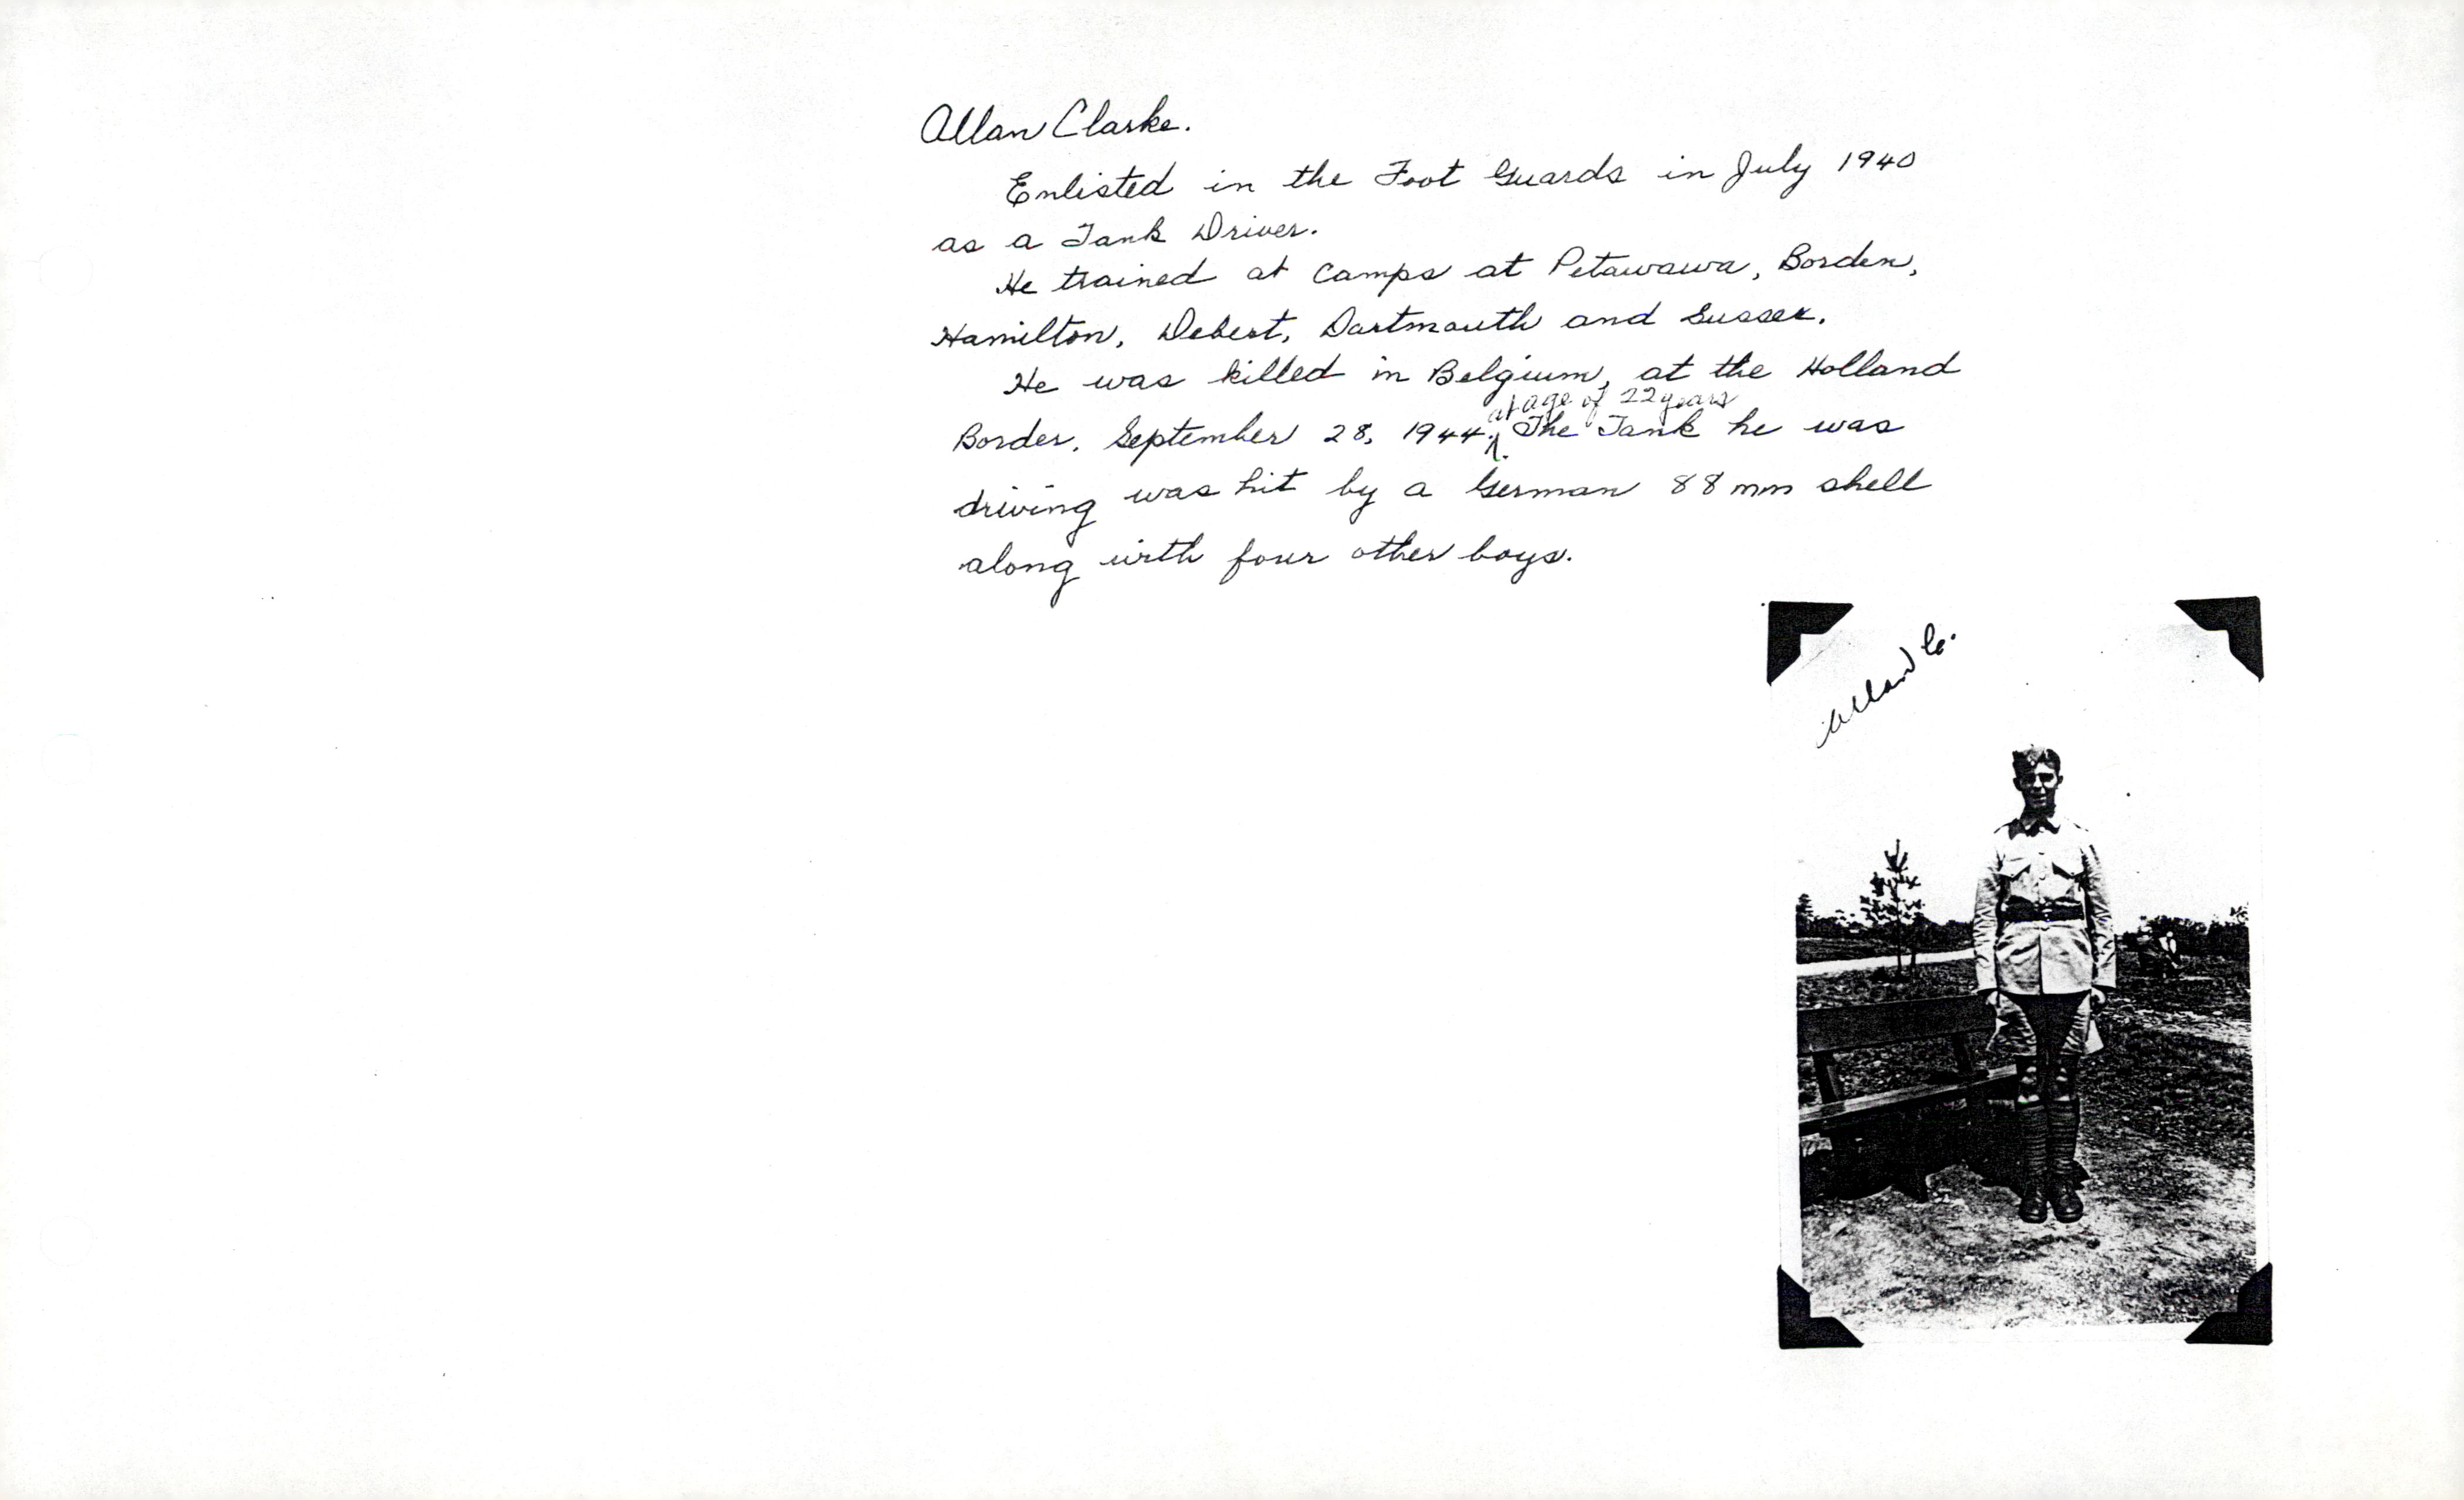 Allan Clarke.
Enlisted in the Foot Guards in July 1940
as a Tank Driver.
He trained at Camps at Petawawa, Borden,
Hamilton, Debert, Dartmouth and Sussex.
He was killed in Belgium, at the Holland
at age of 22 years
Border, September 28, 1944. The Tank he was
driving was hit by a German 88 mm shell
along with four other boys.
Allan C.